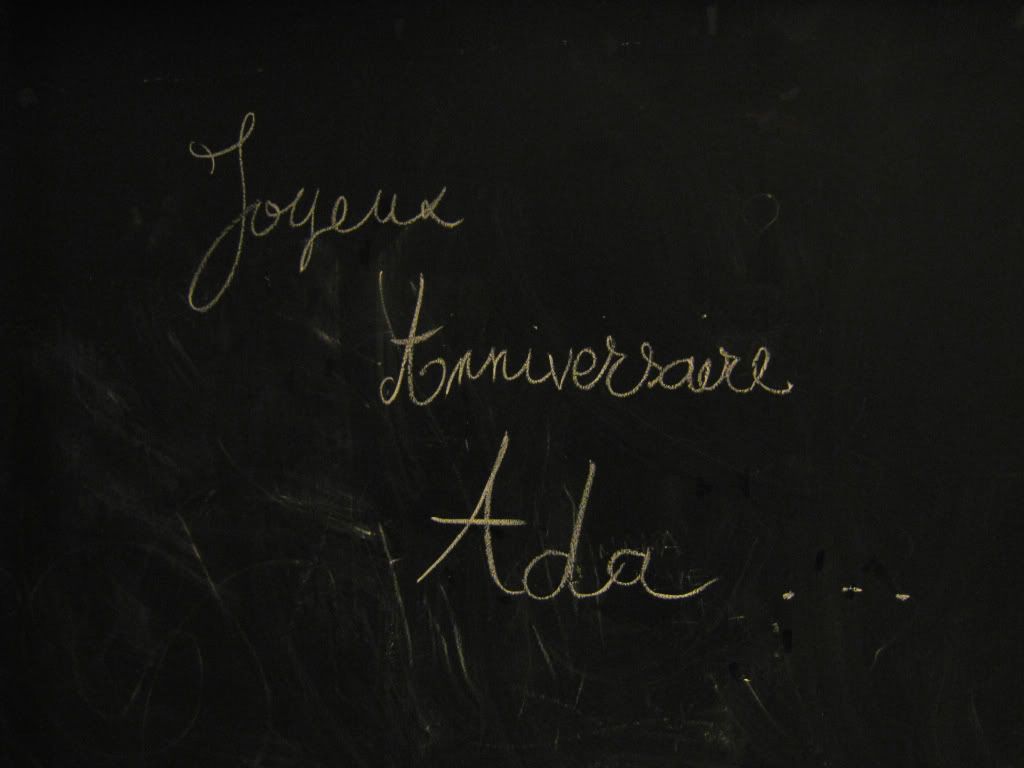 Joyeux
Anniversaire
Ada ...